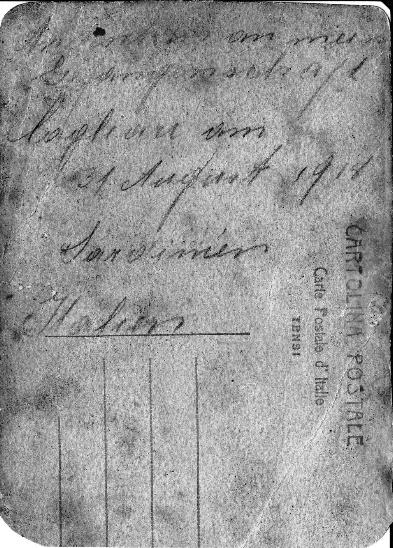 Andenken an meine
Gefangenschaft
Cagliari am
21 August 1918
Sardinien
Italien
CARTOLINA POSTALE
Carte Postale d'Italie
TENSI